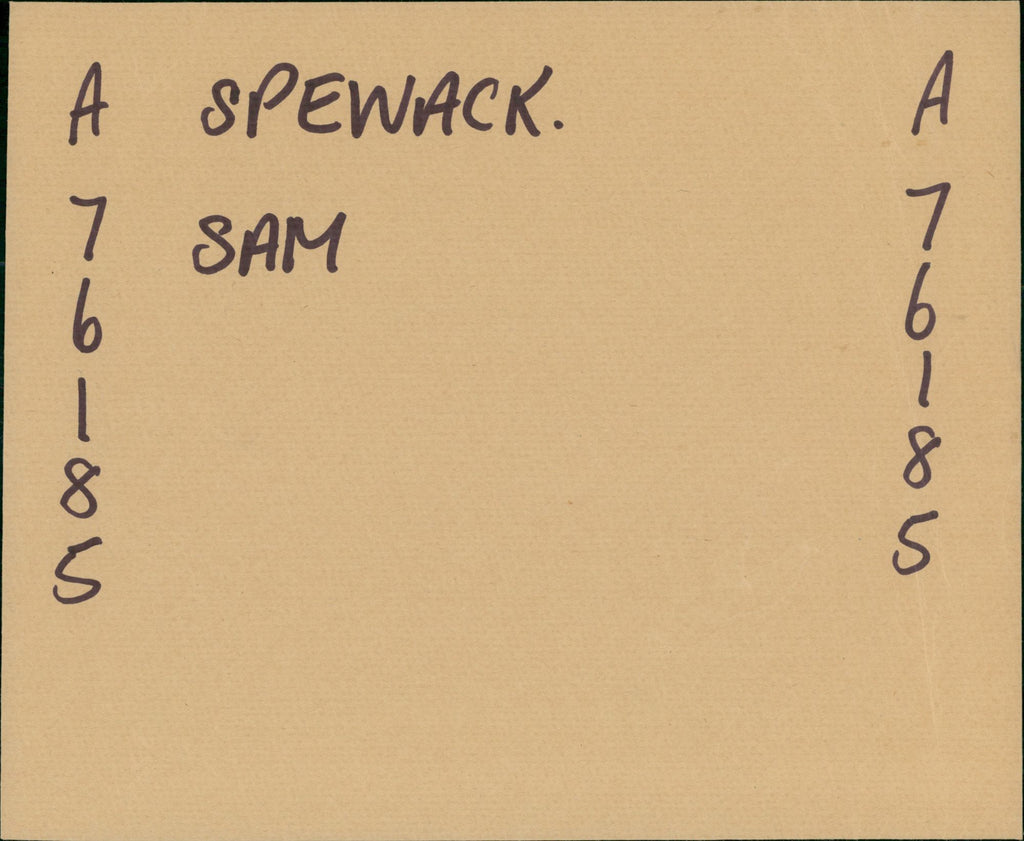 A SPEWACK. A
7 SAM 7
6 6
1 1
8 8
5 5